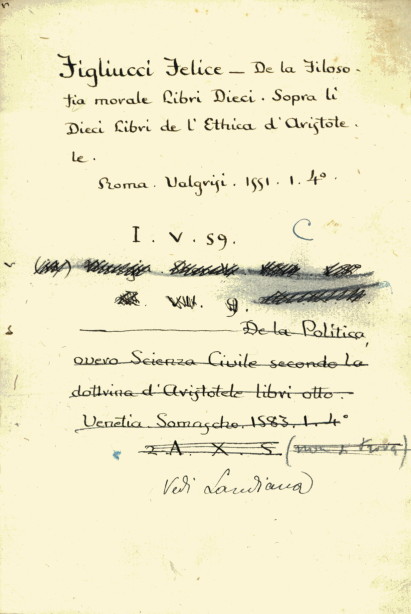 Figliucci Felice — De la Filoso-
fia morale Libri Dieci. Sopra li
Dieci Libri de l'Ethica d'Aristote-
le.
Roma. Valgrisi. 1551. 1. 4°.
I. V. 59. C
VII. 9.
De la Politica,
overo Scienza Civile secondo la
dottrina d'Aristotele libri otto.
Venetia. Somascho. 1583. 1. 4°
2. A. X. 5 (non si trova)
Vedi Landiana